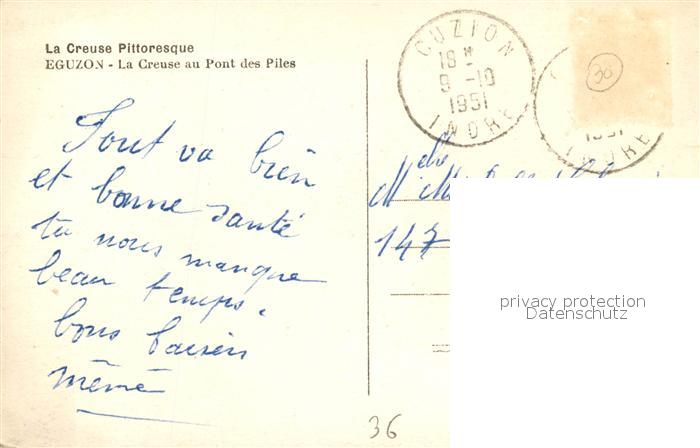 La Creuse Pittoresque
EGUZON - La Creuse au Pont des Piles
CUZION
18 H
9 -10
1951
INDRE
30
1951
INDRE
Tout va bien
et bonne santé
tu nous manque
beau temps.
bons baisers
mémé
147
privacy protection
Datenschutz
36